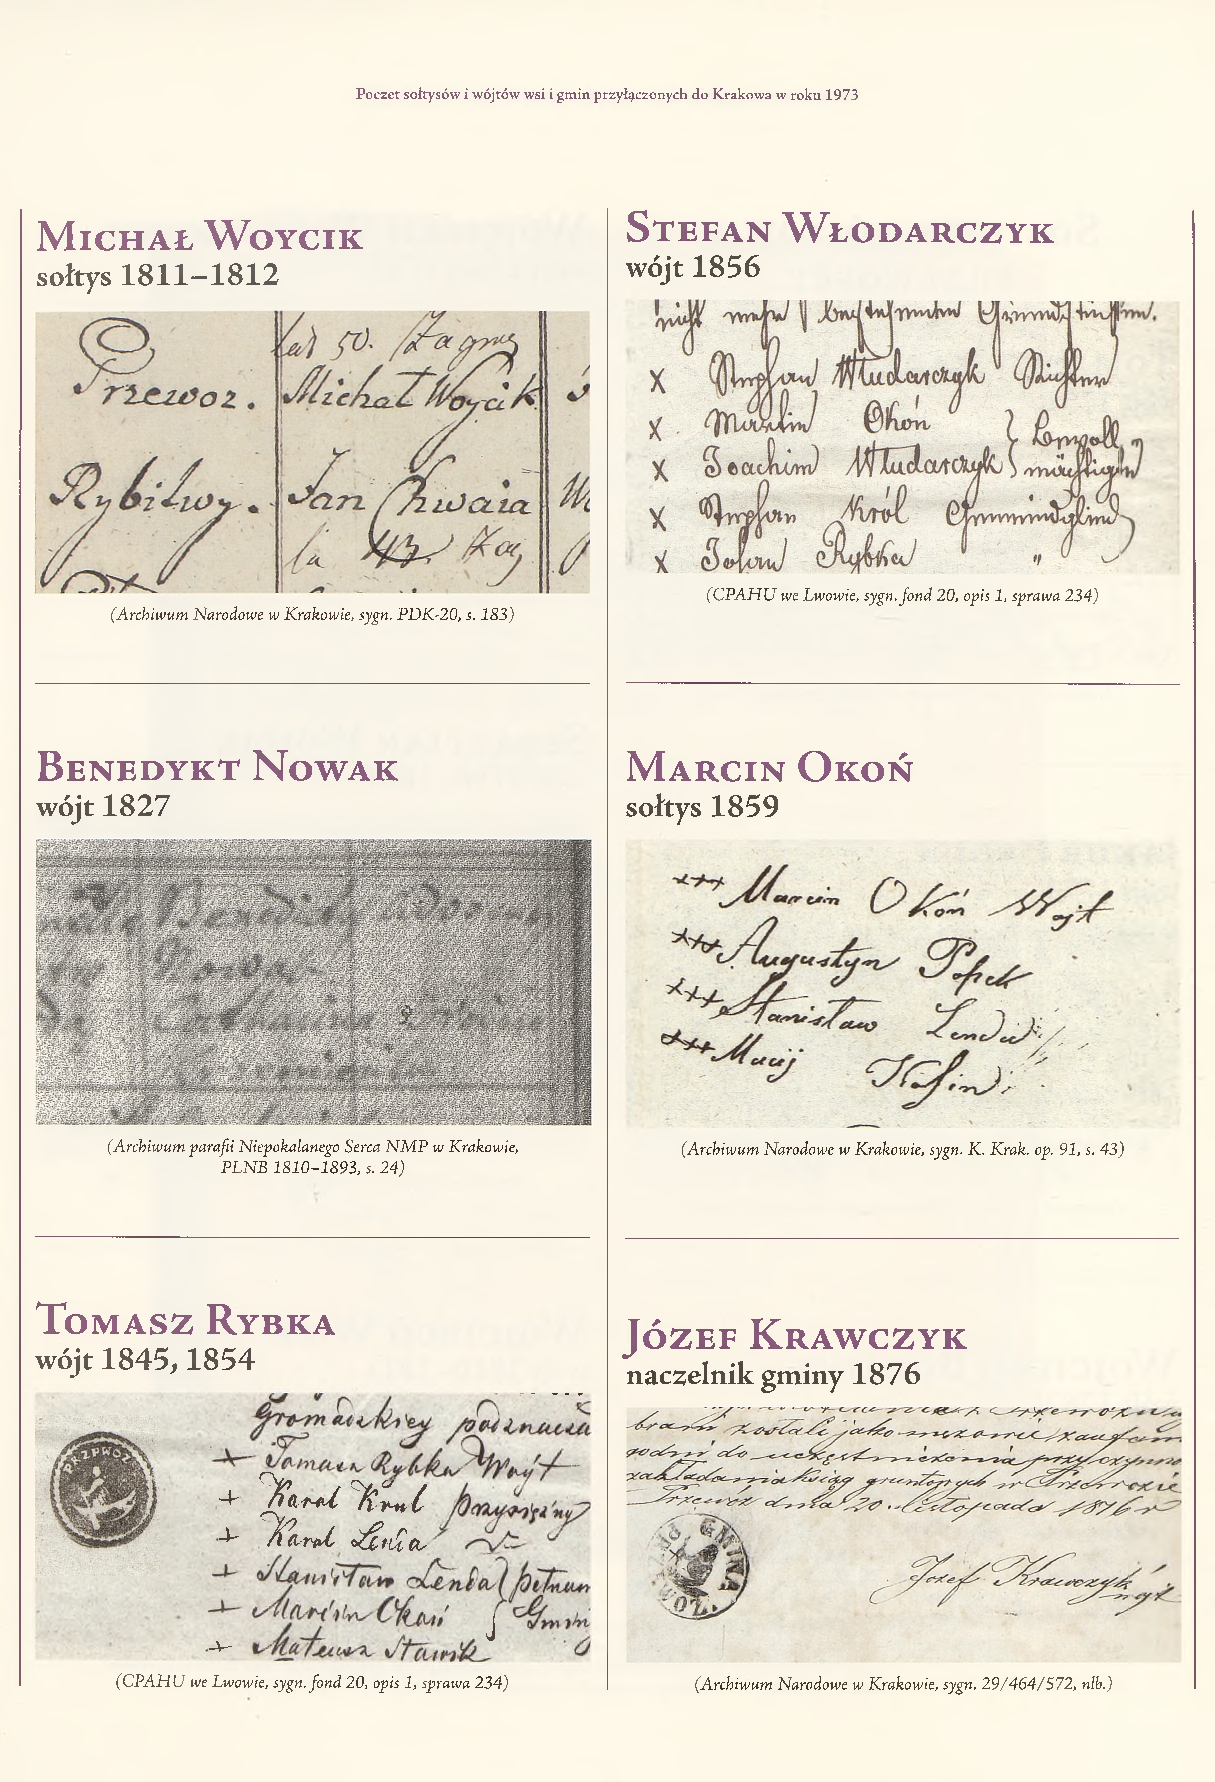 Poczet sołtysów i wójtów wsi i gmin przyłączonych do Krakowa w roku 1973
Michał Woycik
sołtys 1811–1812
lat 50. Zagrog
Przewoz. Michał Woycik
Rybitwy. Jan Chwaia
la 43. Zag
(Archiwum Narodowe w Krakowie, sygn. PDK-20, s. 183)
Benedykt Nowak
wójt 1827
Benedikt
Nowak
Catharina
(Archiwum parafii Niepokalanego Serca NMP w Krakowie,
PLNB 1810–1893, s. 24)
Tomasz Rybka
wójt 1845, 1854
Gromadzkiey podznacza
PRZEWOZ
+ Tomasz Rybka Woyt
+ Karol Krul przysiężny
+ Karol Lenda
+ Stanisław Lenda
+ Marcin Okoń Gminy
+ Mateusz Stawik
(CPAHU we Lwowie, sygn. fond 20, opis 1, sprawa 234)
Stefan Włodarczyk
wójt 1856
nicht mehr bestehenden
x Stephan Wludarczyk Richter
x Martin Okoń
Bevoll
x Joachim Wludarczyk mächtigte
x Stephan Król Gemeindglied
x Johan Rybka "
(CPAHU we Lwowie, sygn. fond 20, opis 1, sprawa 234)
Marcin Okoń
sołtys 1859
+++ Marcin Okoń Wojt
+++ Augustyn Popek
+++ Stanisław Lenda
+++ Macij
(Archiwum Narodowe w Krakowie, sygn. K. Krak. op. 91, s. 43)
Józef Krawczyk
naczelnik gminy 1876
brani zostali jako mężowie zaufani
godni do uczęstniczenia przy czynno
zakładania ksiąg gruntowych w Przewozie
Przewóz dnia 20. Listopada 1876 r
GMINA PRZEWOZ
Józef Krawczyk
wójt
(Archiwum Narodowe w Krakowie, sygn. 29/464/572, nlb.)